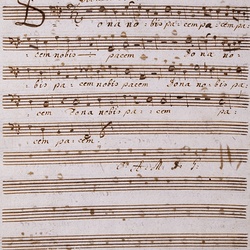 Dona nobis pa: cem pa: cem pa:
cem nobis pacem Dona no:
bis pa: cem nobis pacem Dona no: bis pa:
cem Dona nobis pa: cem pa:
cem pa: cem.